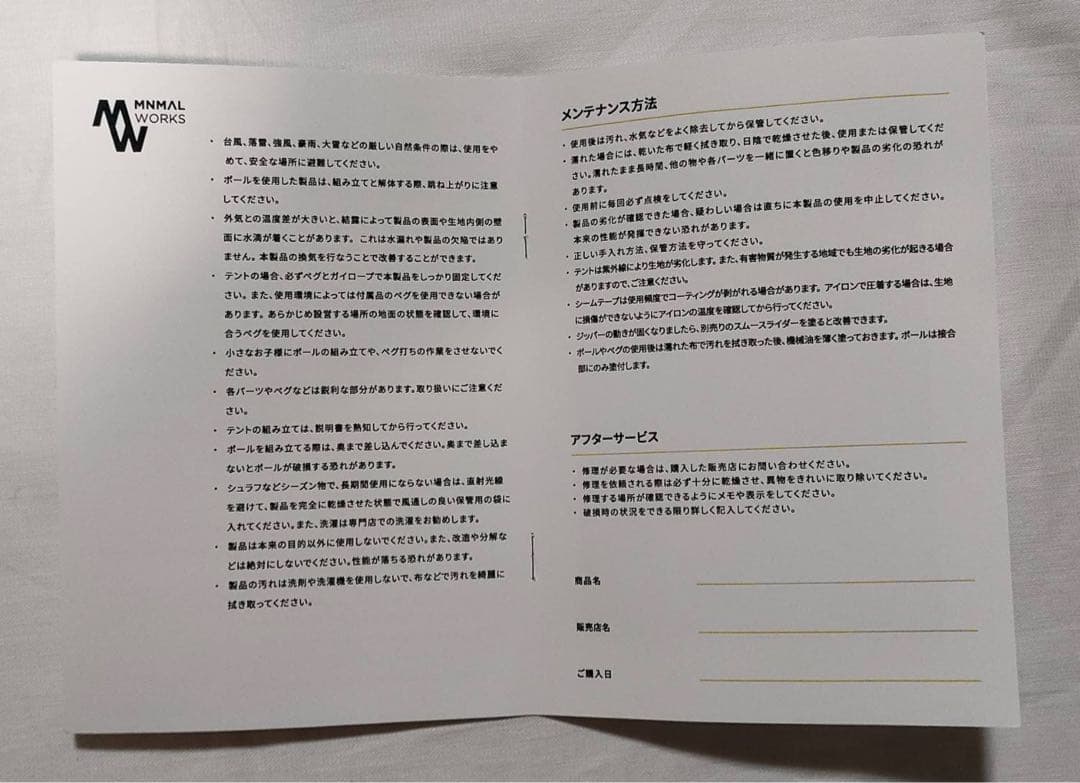 MNMAL
WORKS
・ 台風、落雷、強風、豪雨、大雪などの厳しい自然条件の際は、使用をや
めて、安全な場所に避難してください。
・ ポールを使用した製品は、組み立てと解体する際、跳ね上がりに注意
してください。
・ 外気との温度差が大きいと、結露によって製品の表面や生地内側の壁
面に水滴が着くことがあります。 これは水漏れや製品の欠陥ではあり
ません。本製品の換気を行なうことで改善することができます。
・ テントの場合、必ずペグとガイロープで本製品をしっかり固定してくだ
さい。また、使用環境によっては付属品のペグを使用できない場合が
あります。あらかじめ設営する場所の地面の状態を確認して、環境に
合うペグを使用してください。
・ 小さなお子様にポールの組み立てや、ペグ打ちの作業をさせないでく
ださい。
・ 各パーツやペグなどは鋭利な部分があります。取り扱いにご注意くだ
さい。
・ テントの組み立ては、説明書を熟知してから行ってください。
・ ポールを組み立てる際は、奥まで差し込んでください。奥まで差し込ま
ないとポールが破損する恐れがあります。
・ シュラフなどシーズン物で、長期間使用にならない場合は、直射光線
を避けて、製品を完全に乾燥させた状態で風通しの良い保管用の袋に
入れてください。また、洗濯は専門店での洗濯をお勧めします。
・ 製品は本来の目的以外に使用しないでください。また、改造や分解な
どは絶対にしないでください。性能が落ちる恐れがあります。
・ 製品の汚れは洗剤や洗濯機を使用しないで、布などで汚れを綺麗に
拭き取ってください。
メンテナンス方法
・ 使用後は汚れ、水気などをよく除去してから保管してください。
・ 濡れた場合には、乾いた布で軽く拭き取り、日陰で乾燥させた後、使用または保管してくだ
さい。濡れたまま長時間、他の物や各パーツを一緒に置くと色移りや製品の劣化の恐れが
あります。
・ 使用前に毎回必ず点検をしてください。
・ 製品の劣化が確認できた場合、疑わしい場合は直ちに本製品の使用を中止してください。
本来の性能が発揮できない恐れがあります。
・ 正しい手入れ方法、保管方法を守ってください。
・ テントは紫外線により生地が劣化します。また、有害物質が発生する地域でも生地の劣化が起きる場合
がありますので、ご注意ください。
・ シームテープは使用頻度でコーティングが剥がれる場合があります。 アイロンで圧着する場合は、生地
に損傷ができないようにアイロンの温度を確認してから行ってください。
・ ジッパーの動きが固くなりましたら、別売りのスムースライダーを塗ると改善できます。
・ ポールやペグの使用後は濡れた布で汚れを拭き取った後、機械油を薄く塗っておきます。ポールは接合
部にのみ塗付します。
アフターサービス
・ 修理が必要な場合は、購入した販売店にお問い合わせください。
・ 修理を依頼される際は必ず十分に乾燥させ、異物をきれいに取り除いてください。
・ 修理する場所が確認できるようにメモや表示をしてください。
・ 破損時の状況をできる限り詳しく記入してください。
商品名
販売店名
ご購入日